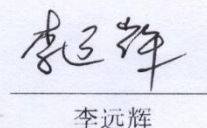 李远辉
李远辉